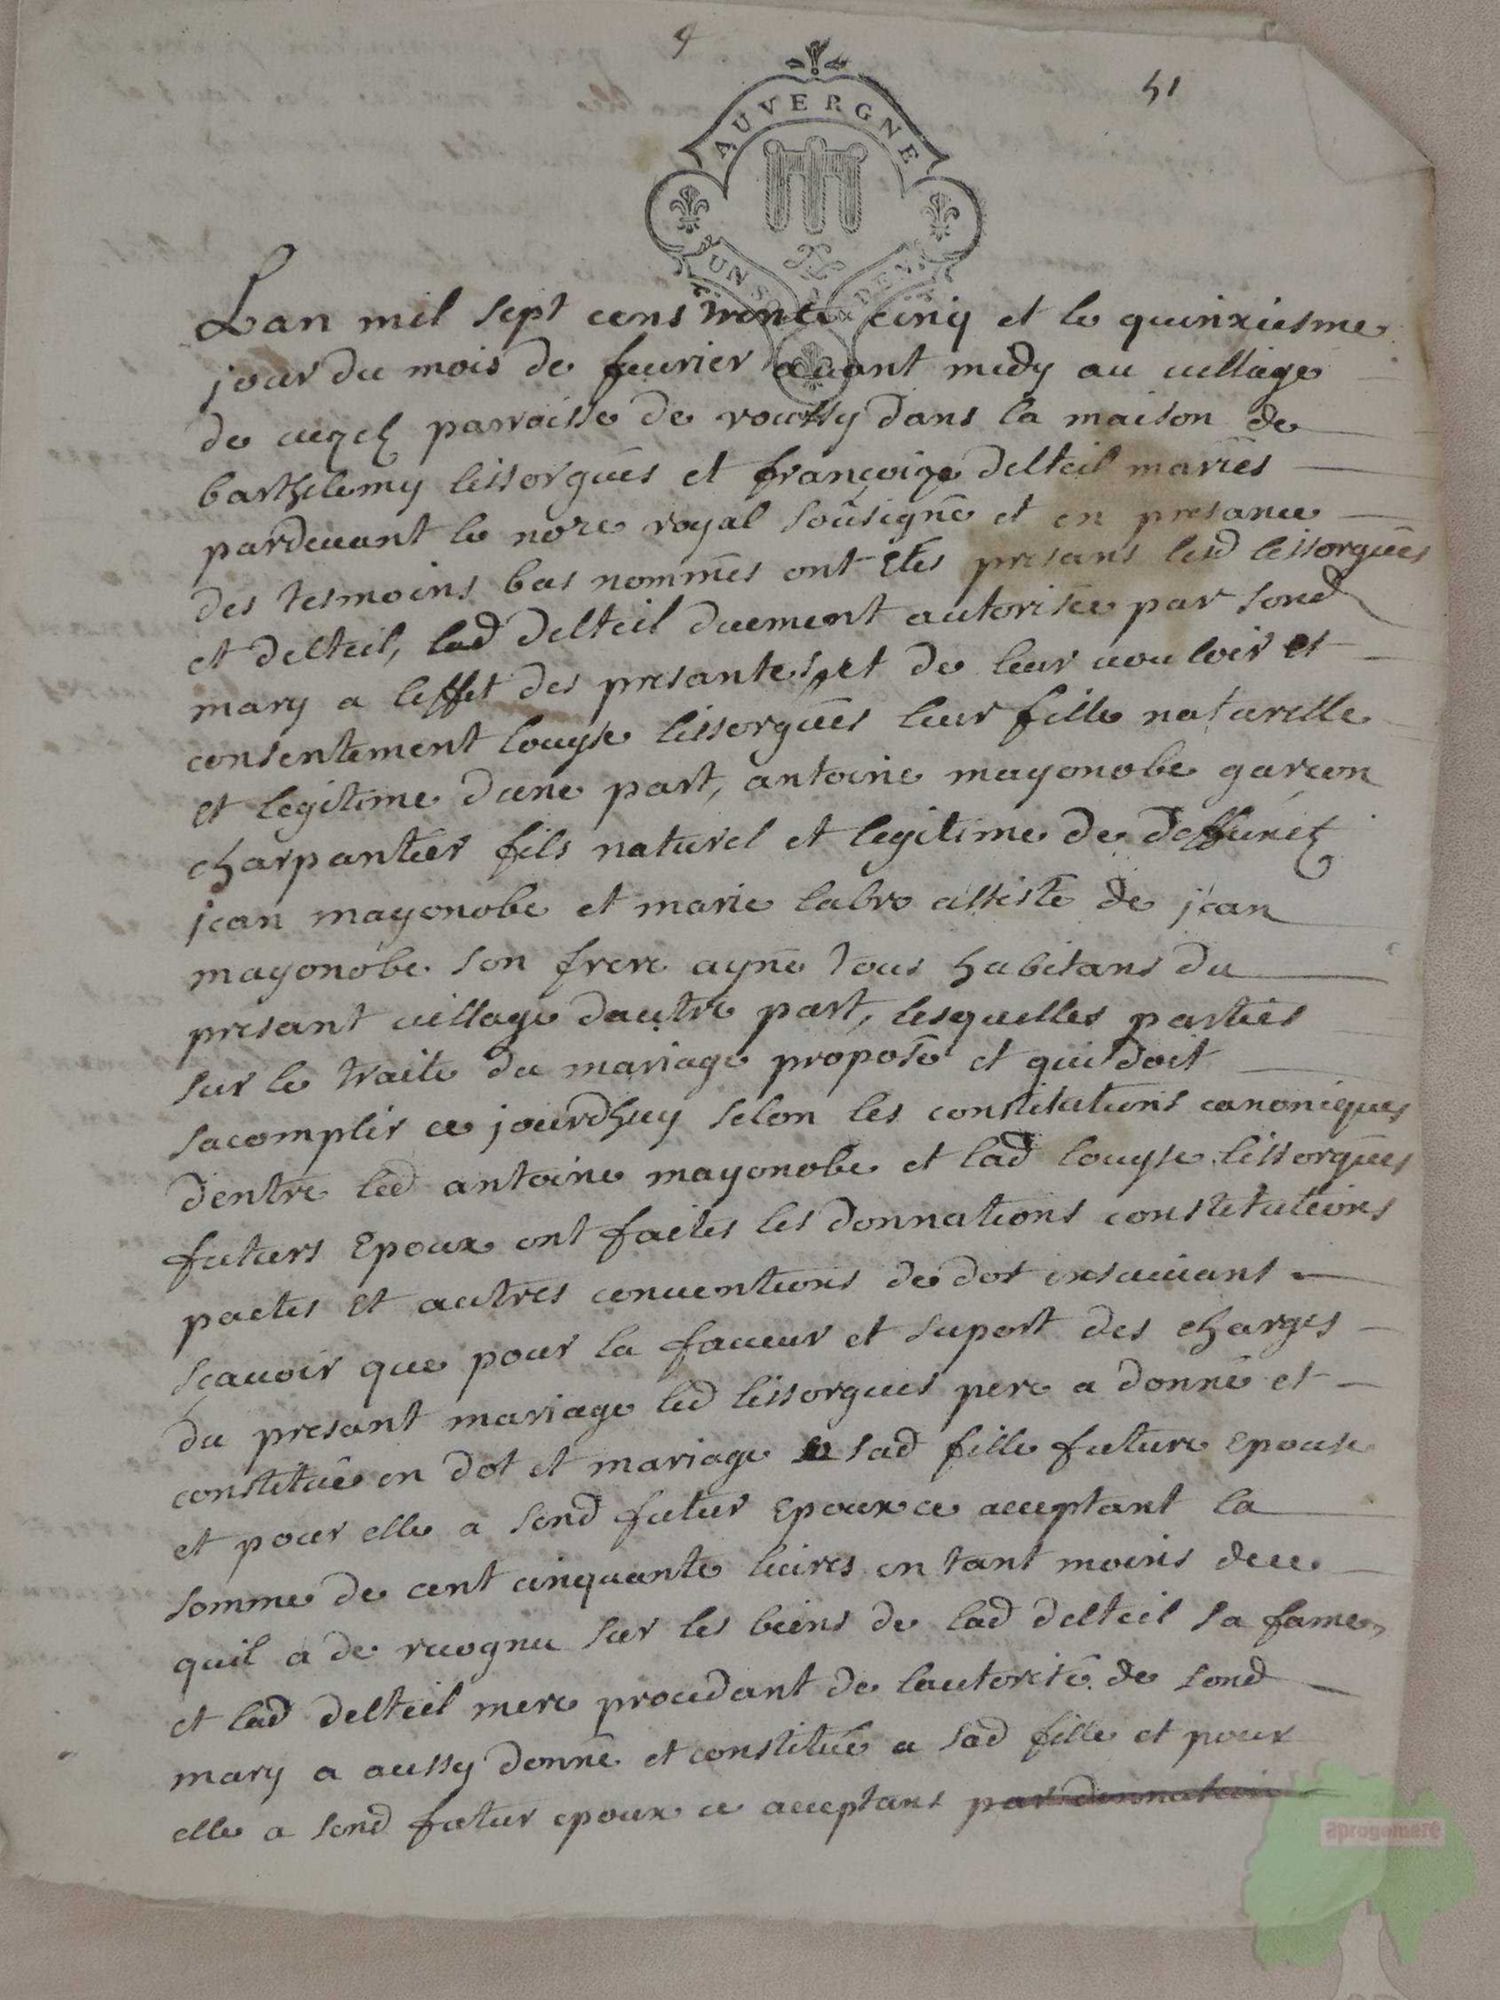 51
AUVERGNE
UN SOL
DEN.
Lan mil sept cens trente cinq et le quinziesme
jour du mois de feuvrier avant midy au village
de parroisse de roussy dans la maison de
barthelemy lissorgues et françoize delteil mariés
pardevant le nore royal soûsigné et en presance
des tesmoins bas nommés ont étés presans lesd lissorgues
et delteil, lad delteil duement autorisée par sond
mary a leffet des presantes, et de leur vouloir et
consentement louyse lissorgues leur fille naturelle
et legitime dune part, antoine mayonobe garçon
charpantier fils naturel et legitime de deffunctz
jean mayonobe et marie labro assisté de jean
mayonobe son frere ayné tous habitans du
presant village dautre part, lesquelles parties
sur le traite du mariage proposé et qui doit
sacomplir ce jourdhuy selon les constitutions canoniques
dentre led antoine mayonobe et lad louyse lissorgues
futurs epoux ont faites les donnations constitutions
pactes et autres conventions de dot ensuivans
sçavoir que pour la faveur et suport des charges
du presant mariage led lissorgues pere a donné et
constitué en dot et mariage a sad fille future epouse
et pour elle a sond futur epoux ce acceptant la
somme de cent cinquante livres en tant moins de ce
quil a de recognu sur les biens de lad delteil sa fame,
et lad delteil mere procedant de lautorité de sond
mary a aussy donné et constitué a sad fille et pour
elle a sond futur epoux ce acceptans par donnation
aprogomaré